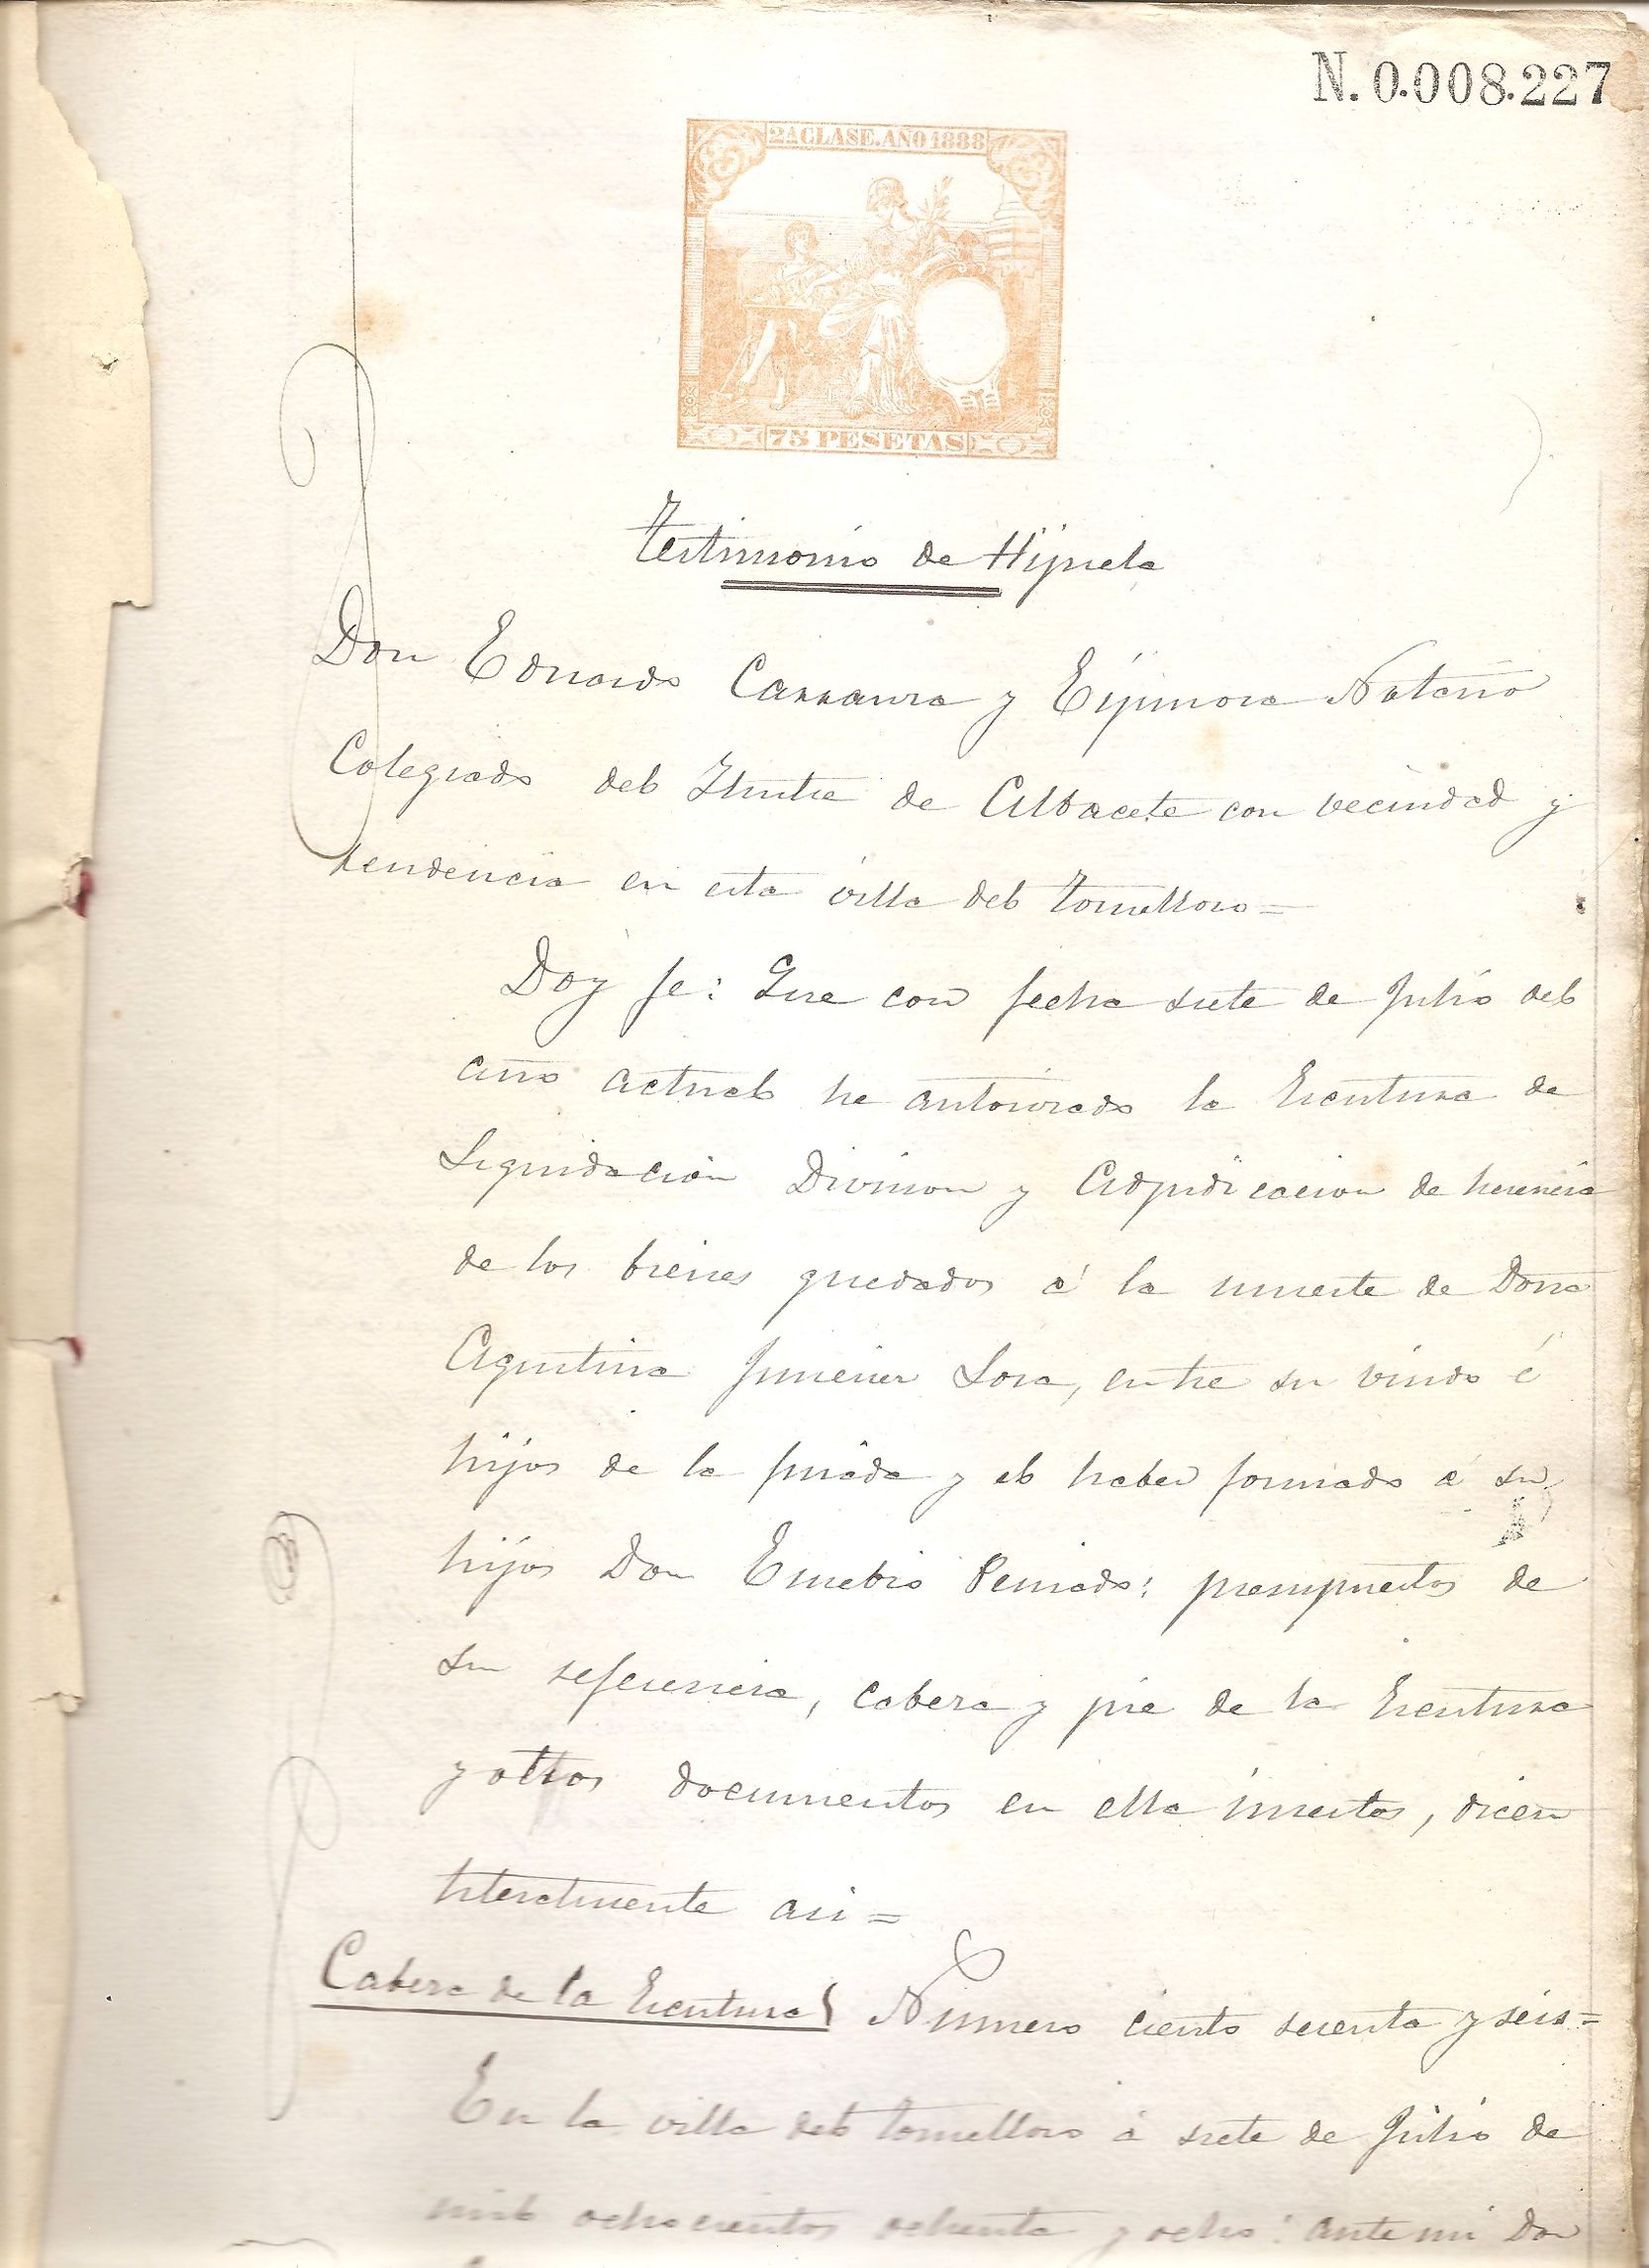 N. 0.008.227
2ª CLASE. AÑO 1888
75 PESETAS
Testimonio de Hijuela
Don Eduardo Carranza y Espinosa Notario
Colegiado del Ilustre de Albacete con vecindad y
residencia en esta villa del Tomelloso =
Doy fe: Que con fecha siete de Julio del
año actual he autorizado la Escritura de
Liquidacion Division y Adjudicacion de herencia
de los bienes quedados á la muerte de Doña
Agustina Jimenez Losa, entre su viudo é
hijos de la finada y el haber formado á su
hijos Don Eusebio Peinado: presupuestos de
su referencia, cabeza y pie de la Escritura
y otros documentos en ella insertos, dicen
literalmente asi =
Cabeza de la Escritura} Número ciento sesenta y seis =
En la villa del Tomelloso á siete de Julio de
mil ochocientos ochenta y ocho: ante mi Don